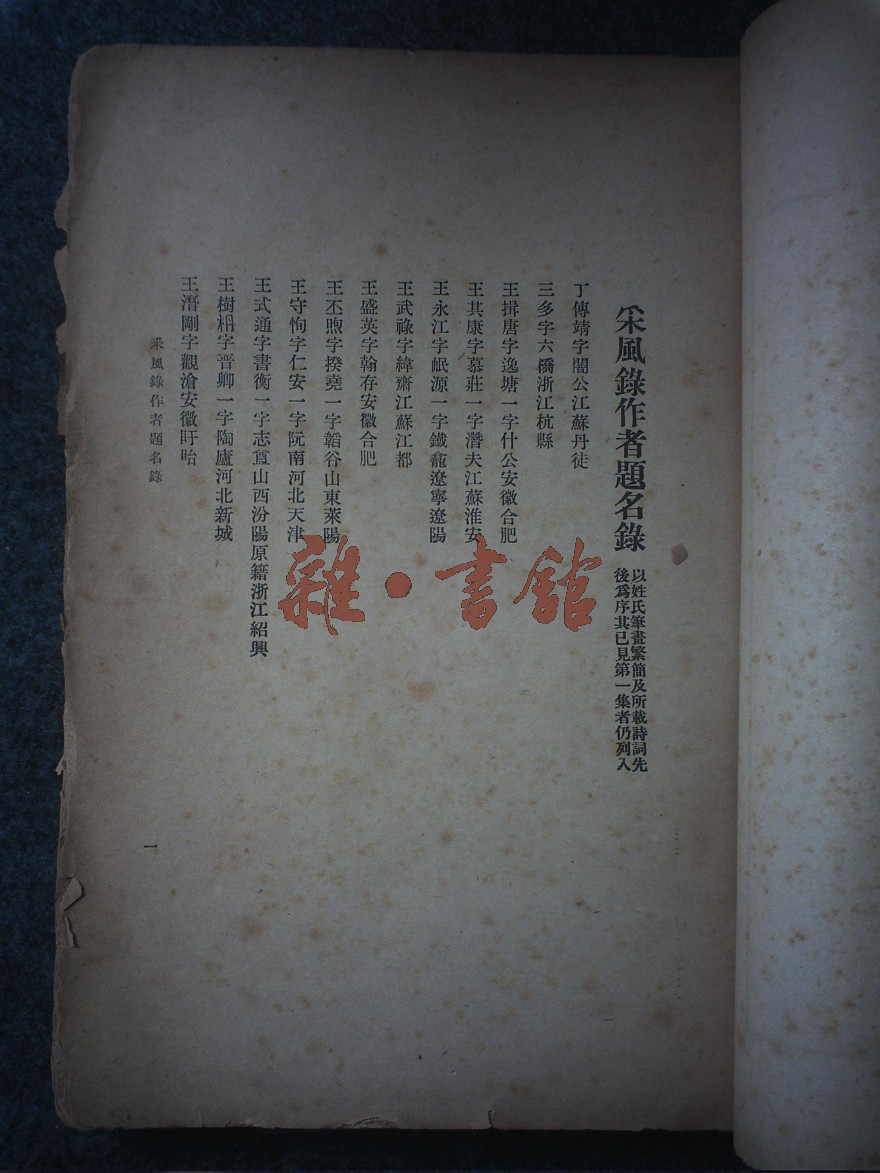 采風錄作者題名錄
以姓氏筆畫繁簡及所載詩詞先
後爲序其已見第一集者仍列入
丁傳靖字闇公江蘇丹徒
三多字六橋浙江杭縣
王揖唐字逸塘一字什公安徽合肥
王其康字慕莊一字潛夫江蘇淮安
王永江字岷源一字鐵龕遼寧遼陽
王武祿字緯齋江蘇江都
王盛英字翰存安徽合肥
王丕煦字揆堯一字韜谷山東萊陽
王守恂字仁安一字阮南河北天津
王式通字書衡一字志盦山西汾陽原籍浙江紹興
王樹枏字晉卿一字陶廬河北新城
王潛剛字觀滄安徽盱眙
采風錄作者題名錄
一
雜·書館